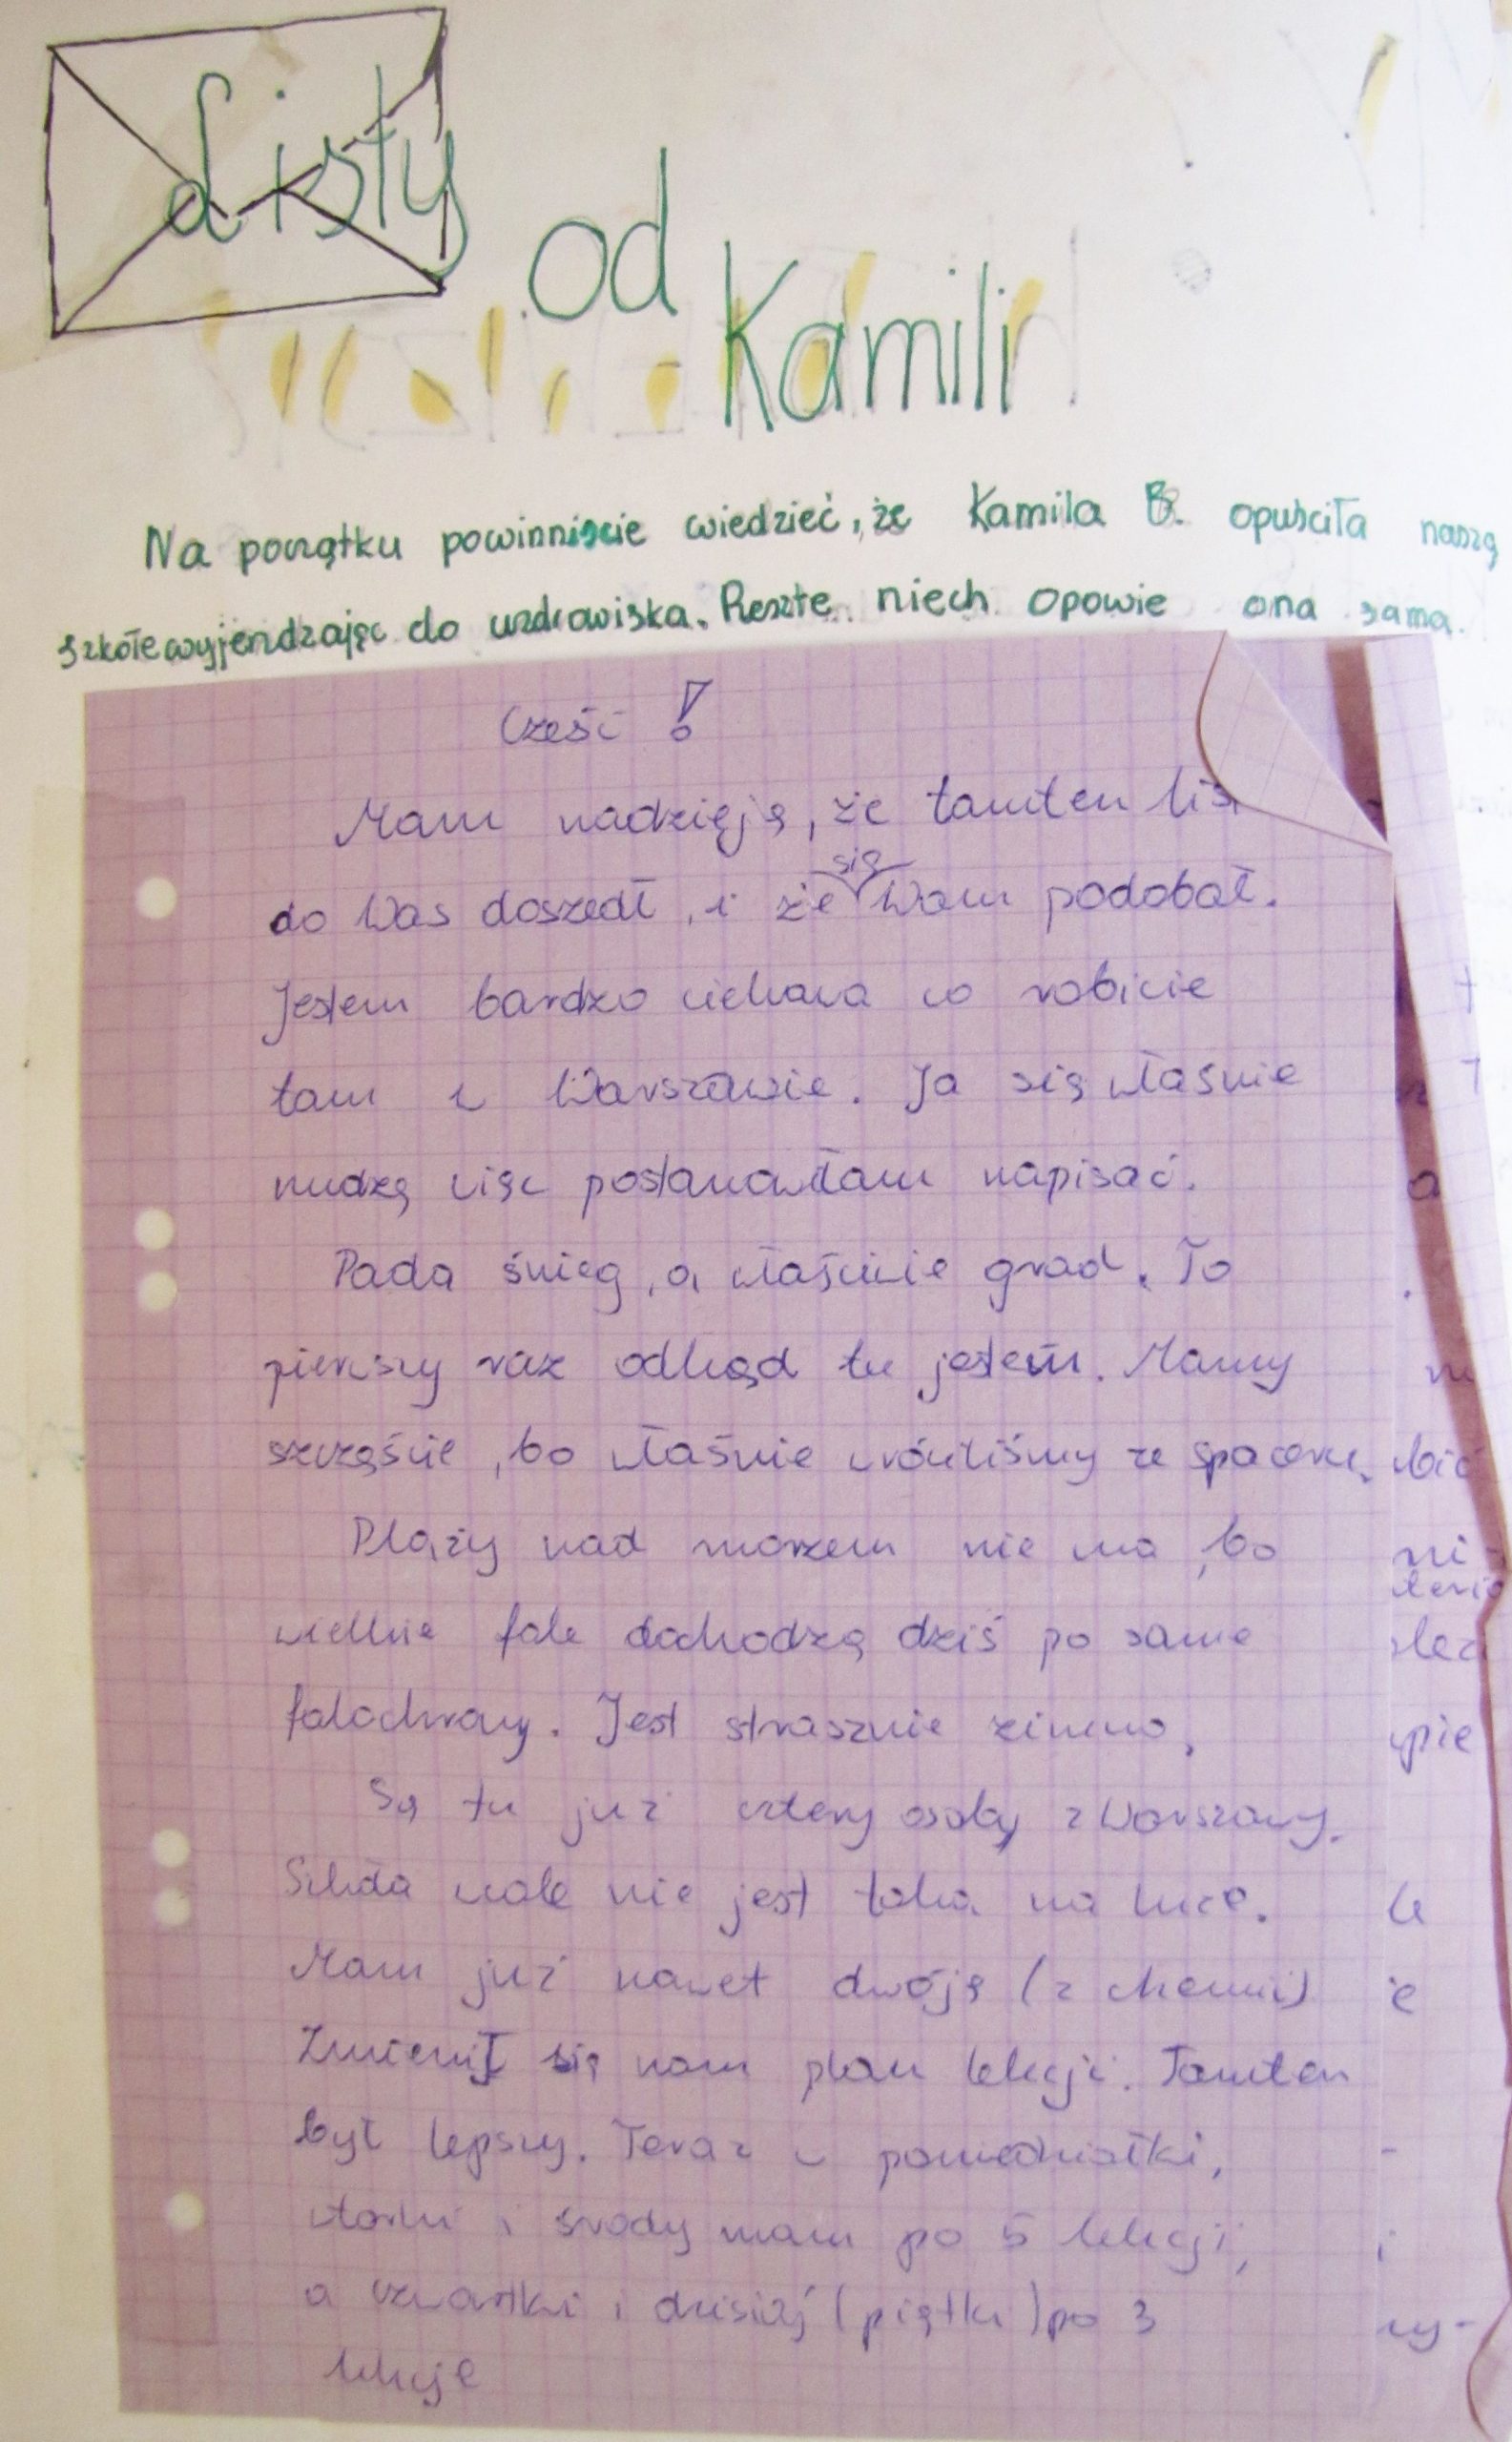 Listy od Kamili
Na początku powinniście wiedzieć, że Kamila B. opuściła naszą
szkołę wyjeżdzając do uzdrowiska. Resztę niech opowie ona sama.
Cześć!
Mam nadzięję, że tamten lis
do Was doszedł, i że się Wam podobał.
Jestem bardzo ciekawa co robicie
tam w Warszawie. Ja się właśnie
nudzę więc postanawiłam napisać.
Pada śnieg, a właściwie grad. To
pierwszy raz odkąd tu jestem. Mamy
szczęście, bo właśnie wróciliśmy ze spaceru.
Plaży nad morzem nie ma, bo
wielkie fale dochodzą dziś po same
falochrony. Jest strasznie zimno.
Są tu już cztery osoby z Warszawy.
Szkoła wcale nie jest taka na luce.
Mam już nawet dwóję (z chemii)
Zmienił się nam plan lekcji. Tamten
był lepszy. Teraz w poniedziałki,
wtorki i środy mam po 5 lekcji,
a czwartki i dzisiaj (piątki) po 3
lekcje